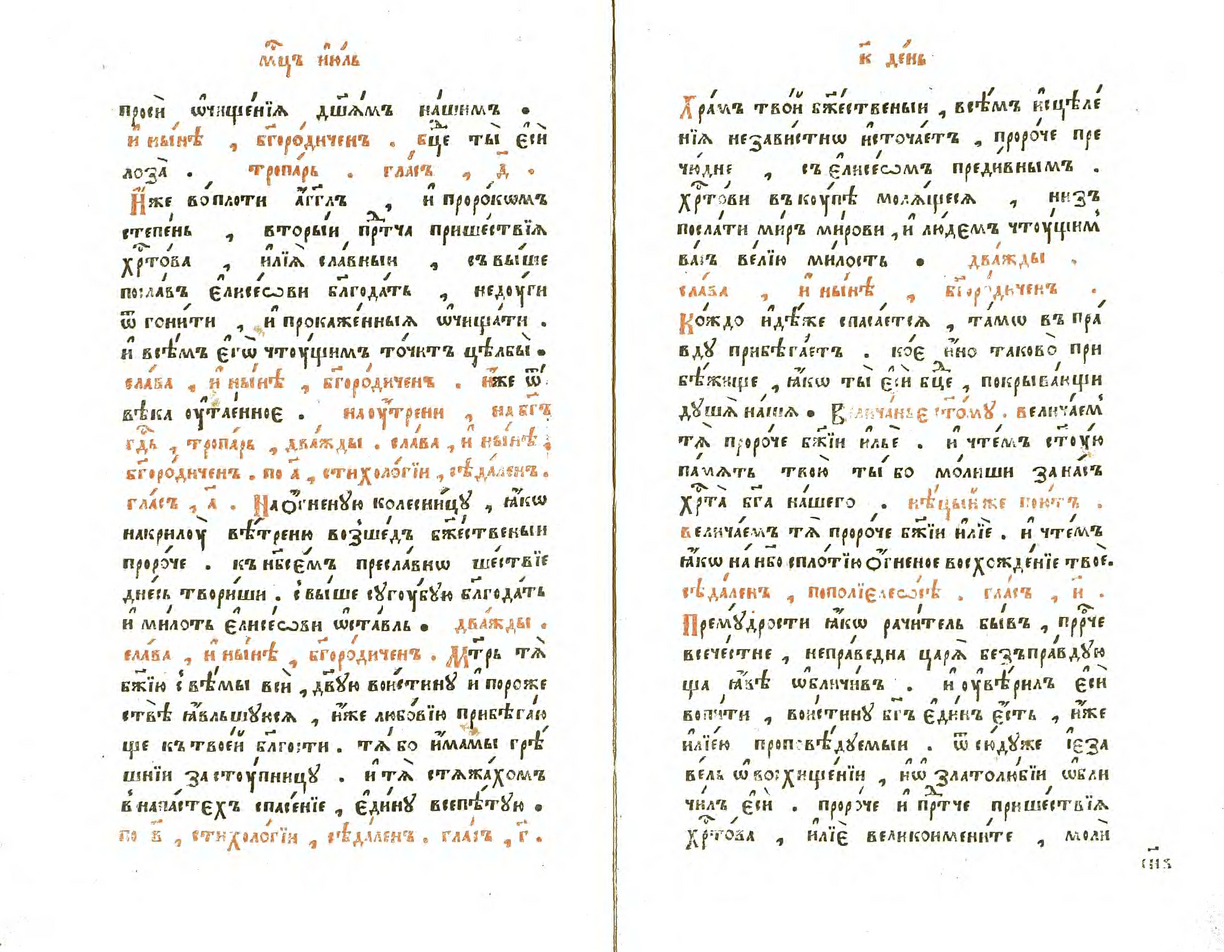 мⷭ҇цъ и҆ю́ль
просѝ ѡ҆чище́нїѧ дш҃а́мъ на́шимъ .
и҆ ны́нѣ , бг҃оро́диченъ . бц҃е ты̀ є҆сѝ
лоза̀ . тропа́рь . гла́съ , д҃ .
И҆́же во пло́ти а҆́гг҃лъ , и҆ проро́кѡмъ
степе́нь , вторы́и прⷣтча прише́ствїѧ
хрⷭ҇то́ва , и҆лїѧ̀ сла́вныи , свы́ше
посла́въ є҆лисе́ѡви бл҃года́ть , неду́ги
ѿгони́ти , и҆ прокаже́нныѧ ѡ҆чища́ти .
и҆ всѣ́мъ є҆гѡ̀ чтоу́щимъ то́читъ цѣлбы̀ .
сла́ва , и҆ ны́нѣ , бг҃оро́диченъ . и҆́же ѿ
вѣ́ка оу҆тае́нное . на оу҆́трени , на бг҃ъ
гдⷭ҇ь , тропа́рь , два́жды . сла́ва , и҆ ны́нѣ ,
бг҃оро́диченъ . по а҃ , стихоло́гїи , сѣда́ленъ .
гла́съ , а҃ . На ѻ҆́гненую колесни́цу , ꙗ҆́кѡ
на крилоу̀ вѣ́треню возше́дъ бж҃е́ственыи
проро́че . къ нбс҃е́мъ пресла́внѡ ше́ствїе
дне́сь твори́ши . свы́ше сугоу́бую бл҃года́ть
и҆ ми́лоть є҆лисе́ѡви ѡ҆ста́вль . два́жды .
сла́ва , и҆ ны́нѣ , бг҃оро́диченъ . Мт҃рь тѧ̀
бж҃їю свѣ́мы всѝ , дв҃ую вои́стину и҆ по роже
ствѣ̀ ꙗ҆́вльшуюсѧ , и҆́же любо́вїю прибѣга́ю
ще къ твое́й бл҃гости . тѧ́ бо и҆́мамы грѣ́
шнїи застоу́пницу . и҆ тѧ̀ стѧжа́хомъ
в напа́стехъ спасе́нїе , є҆ди́ну всепѣ́тую .
по в҃ , стихоло́гїи , сѣда́ленъ . гла́съ , г҃ .
к҃ де́нь
Хра́мъ тво́й бж҃е́ственыи , всѣ́мъ и҆сцѣле́
нїѧ незави́стнѡ и҆сточа́етъ , проро́че пре
чю́дне , съ є҆лисе́ѡмъ преди́внымъ .
хрⷭ҇то́ви вкоу́пѣ молѧ́щесѧ , низ
посла́ти ми́ръ ми́рови , и҆ лю́демъ чтоу́щим
ва́съ ве́лїю ми́лость . два́жды .
сла́ва , и҆ ны́нѣ , бг҃оро́диченъ .
Ко́ждо и҆дѣ́же спаса́етсѧ , та́мѡ въ пра́
вду прибѣга́етъ . ко́е и҆́но таково̀ при
бѣ́жище , ꙗ҆́кѡ ты̀ є҆сѝ бц҃е , покрыва́ющи
ду́ша на́ша . Велича́нье ст҃о́му . велича́ем
тѧ̀ проро́че бж҃їи ильѐ . и҆ чте́мъ ст҃у́ю
па́мѧть твою̀ ты́ бо мо́лиши за на́съ
хрⷭ҇та̀ бг҃а на́шего . нѣ́цыи же пою́тъ .
велича́емъ тѧ̀ проро́че бж҃їи и҆лїѐ . и҆ чте́мъ
ꙗ҆́кѡ на нб҃о с пло́тїю ѻ҆́гненое восхожде́нїе твоѐ .
сѣда́ленъ , по полїеле́ѡсѣ . гла́съ , и҃ .
Прему́дрости ꙗ҆́кѡ рачи́тель бы́въ , прⷪ҇ро́че
всече́стне , непра́ведна царѧ̀ безъпра́вдую
ща ꙗ҆́вѣ ѡ҆бличи́въ . и҆ оу҆вѣ́рилъ є҆сѝ
вопи́ти , вои́стину бг҃ъ є҆ди́нъ є҆́сть , и҆́же
и҆лїе́ю проповѣ́дуемыи . ѿсю́дуже і҆еза
ве́ль ѡ҆ восхище́нїи , и҆ ѡ҆ златолю́бїи ѡ҆бли
чи́лъ є҆сѝ . проро́че и҆ прⷣтче прише́ствїѧ
хрⷭ҇то́ва , и҆лїѐ великоимени́те , молѝ